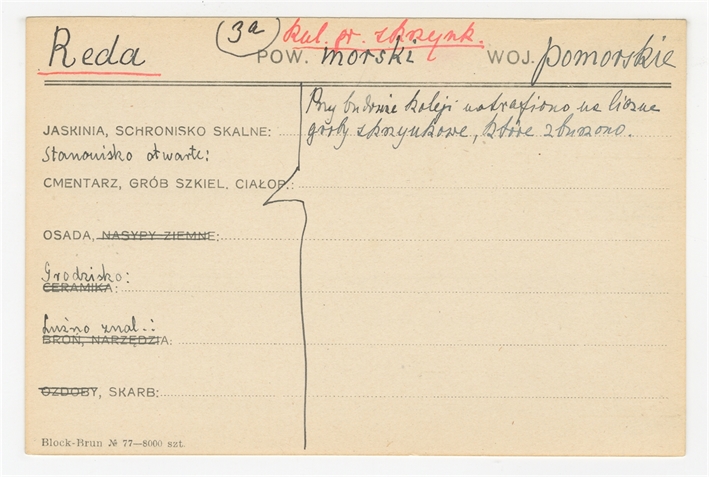 (3a) kul. gr. skrzynk.
Reda POW. morski WOJ. pomorskie
Przy budowie koleji natrafiono na liczne
JASKINIA, SCHRONISKO SKALNE: groby skrzynkowe, które zburzono.
Stanowisko otwarte:
CMENTARZ, GRÓB SZKIEL. CIAŁOP.:
OSADA, NASYPY ZIEMNE:
Grodzisko:
CERAMIKA:
Luźno znal.:
BROŃ, NARZĘDZIA:
OZDOBY, SKARB:
Block-Brun № 77—8000 szt.